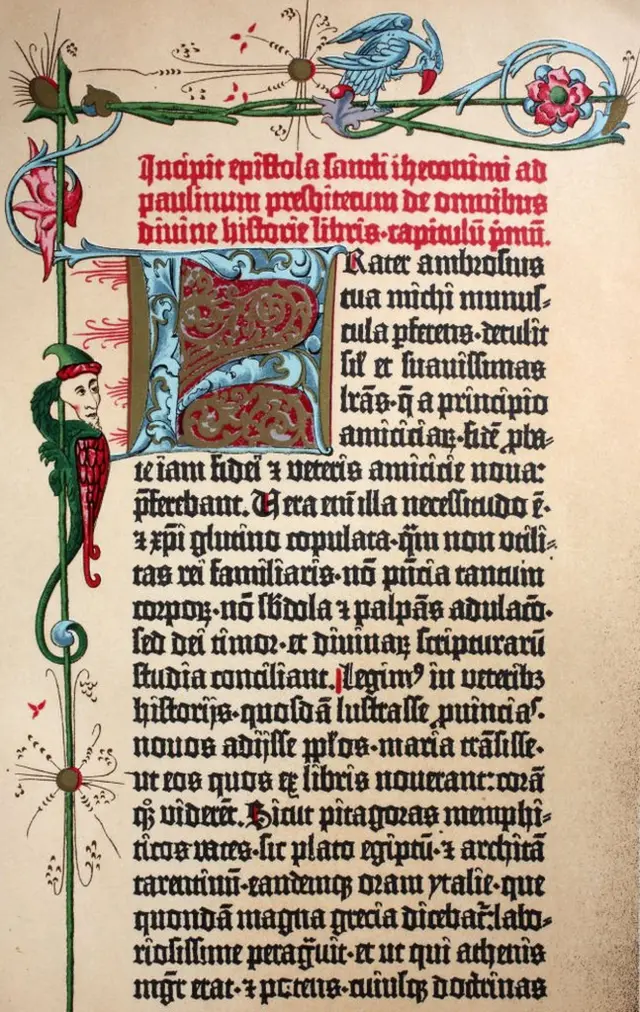 Incipit epistola sancti iheronimi ad
paulinum presbiterum de omnibus
divine historie libris·capitulū pmū.
FRater ambrosius
tua michi munus-
cula pferens·detulit
sił et suavissimas
lrās·q̄ a principio
amiciciaꝝ·fidē pba-
te iam fidei ⁊ veteris amicicie nova:
pferebant. Vera enī illa necessitudo ē·
⁊ xp̄i glutino copulata·q̄m non utili-
tas rei familiaris·nō pn̄cia tantum
corpoꝝ·nō sb̄dola ⁊ palpās adulac̄o·
sed dei timor·et divinaꝝ scripturarū
studia conciliant. Legimꝰ in veteribꝫ
historijs·quosdā lustrasse ꝓuincias·
novos adijsse pp̄los·maria trāsisse·
ut eos quos ex libris noverant:corā
qꝫ viderēt. Sicut pitagoras memphi-
ticos vates·sic plato egiptū·⁊ architā
tarentinū·eandemqꝫ oram ytalie·que
quondā magna grecia dicebat̄:labo-
riosissime peragͣuit·et ut qui athenis
mgr̄ erat·⁊ potens·cuiusqꝫ doctrinas